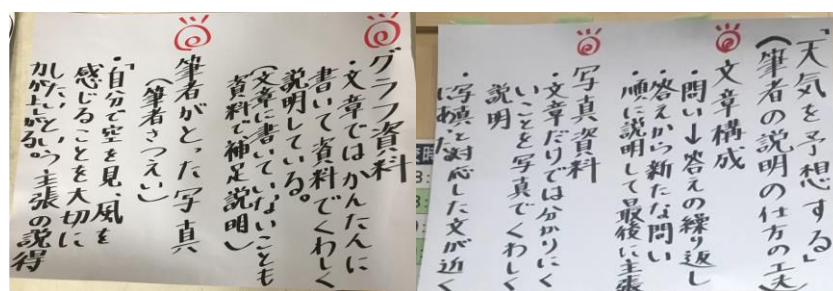 「天気を予想する」
(筆者の説明の仕方の工夫)
文章構成
・問い→答えの繰り返し
・答えから新たな問い
・順に説明して最後に主張
写真資料
・文章だけでは分かりにく
いことを写真でくわしく
説明
・写真と対応した文が近く
にあった
グラフ資料
・文章ではかんたんに
書いて資料でくわしく
説明している。
(文章に書いていないことも
資料で補足説明)
筆者がとった写真
(筆者さつえい)
・「自分で空を見、風を
感じることを大切に
したい」という主張の説得
力が上がる。